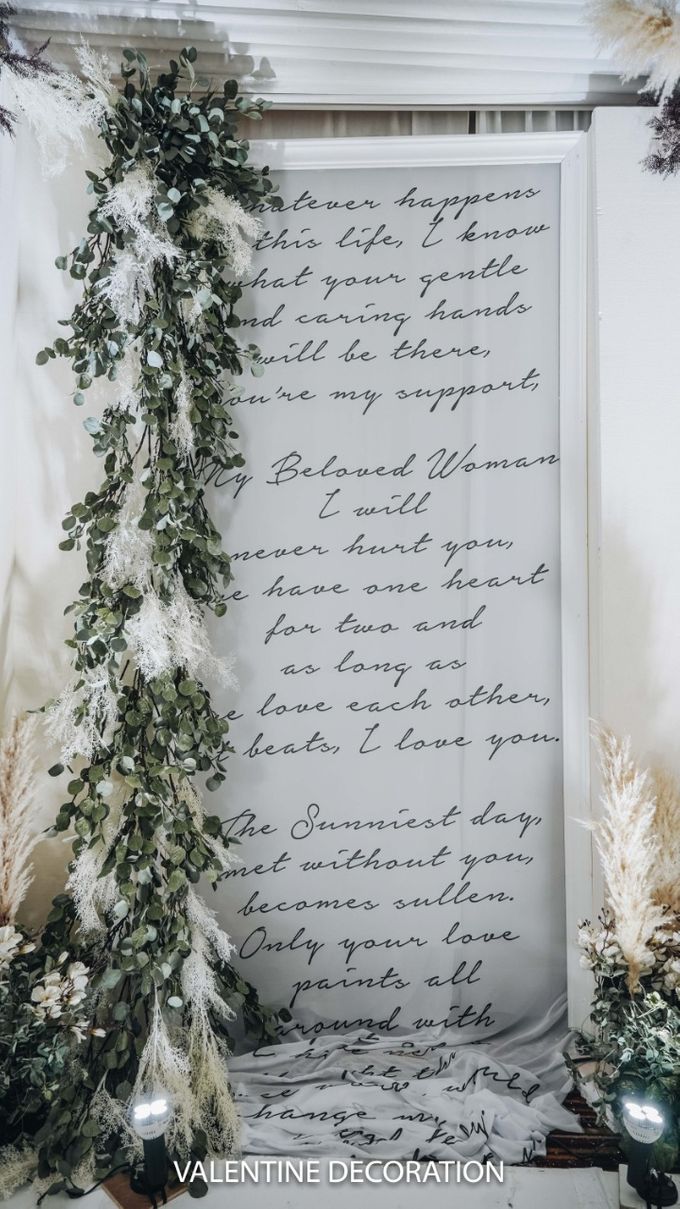 hatever happens
this life, I know
hat your gentle
nd caring hands
will be there,
ou're my support,
My Beloved Woman
I will
never hurt you,
e have one heart
for two and
as long as
e love each other,
t beats, I love you.
The Sunniest day,
met without you,
becomes sullen.
Only your love
paints all
around with
hange
VALENTINE DECORATION